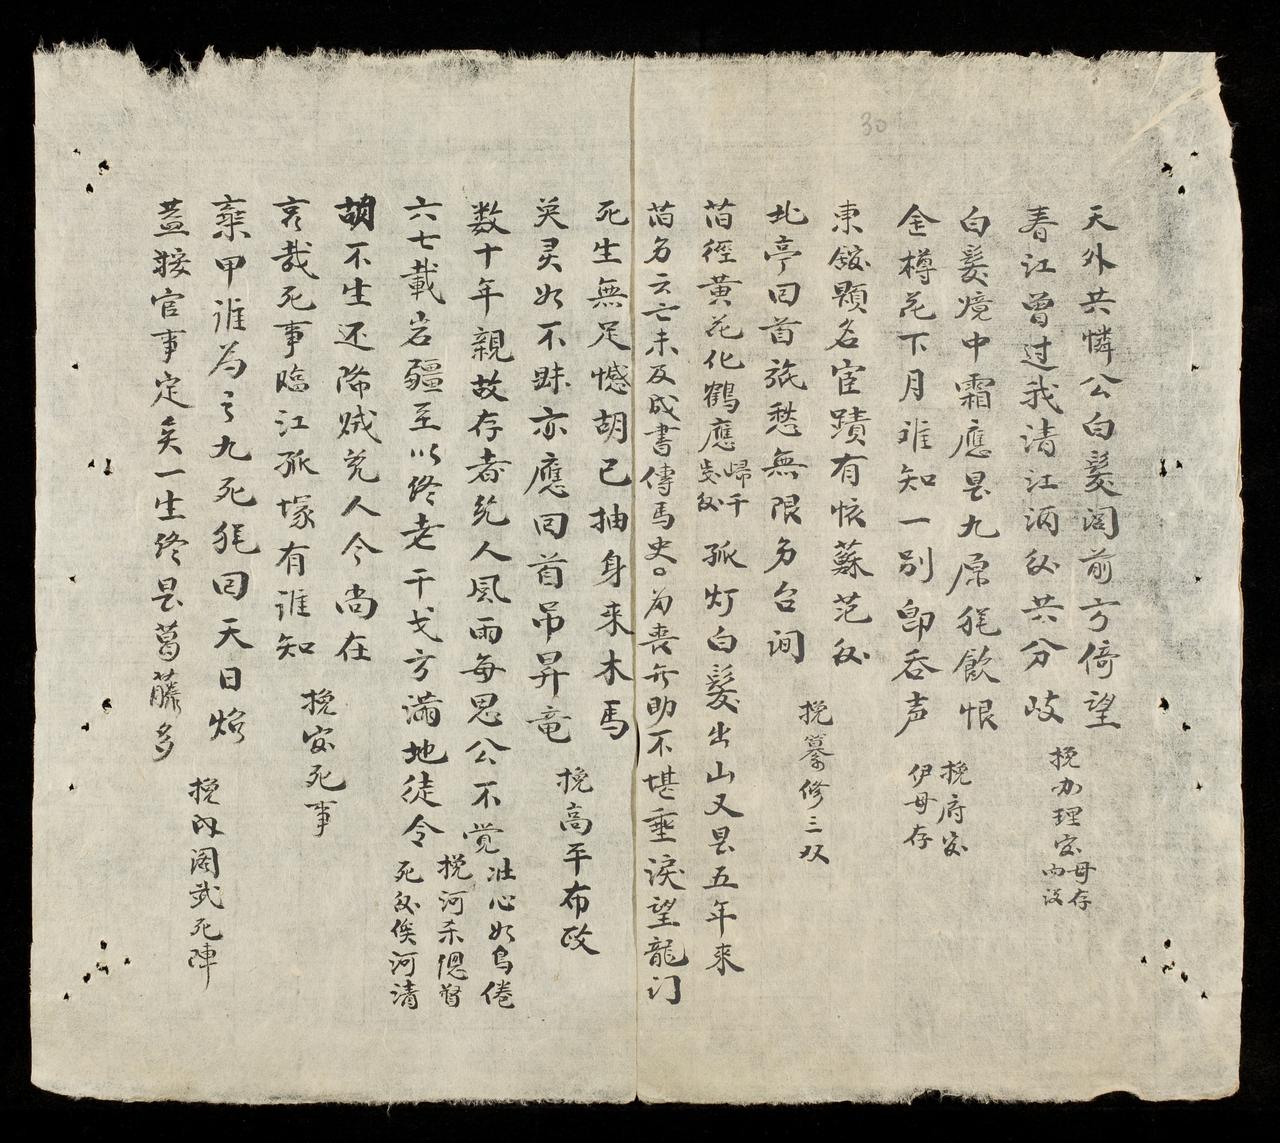 30
天外共憐公白髮閣前方倚望
春江曾过我清江酒後共分岐
挽办理宓母存
内没
白髮境中霜應是九原能飲恨
金樽花下月谁知一別即吞声
挽府宓
伊母存
東館顯名宦蹟有侅蘇范後
北亭回首旅愁無限乃台詞
挽纂修三双
菭徑黄花化鶴應歸千
歲後
孤灯白髮出山又是五年來
菭乃云亡未及成書傳馬史
為喪斤助不堪垂淚望龍门
死生無足憾胡已抽身来木馬
英灵如不昧亦應回首吊昇竜
挽高平布政
数十年親故存者纥人風雨每思公不觉壮心如鳥倦
六七載岩疆至以终老干戈方满地徒令死後俟河清
挽河杀偬督
胡不生还降贼党人今尚在
哀哉死事臨江孤塚有谁知
挽宓死事
棄甲谁为言九死能回天日烙
蓋棺官事定矣一生终是葛藤多
挽内阁武死陣